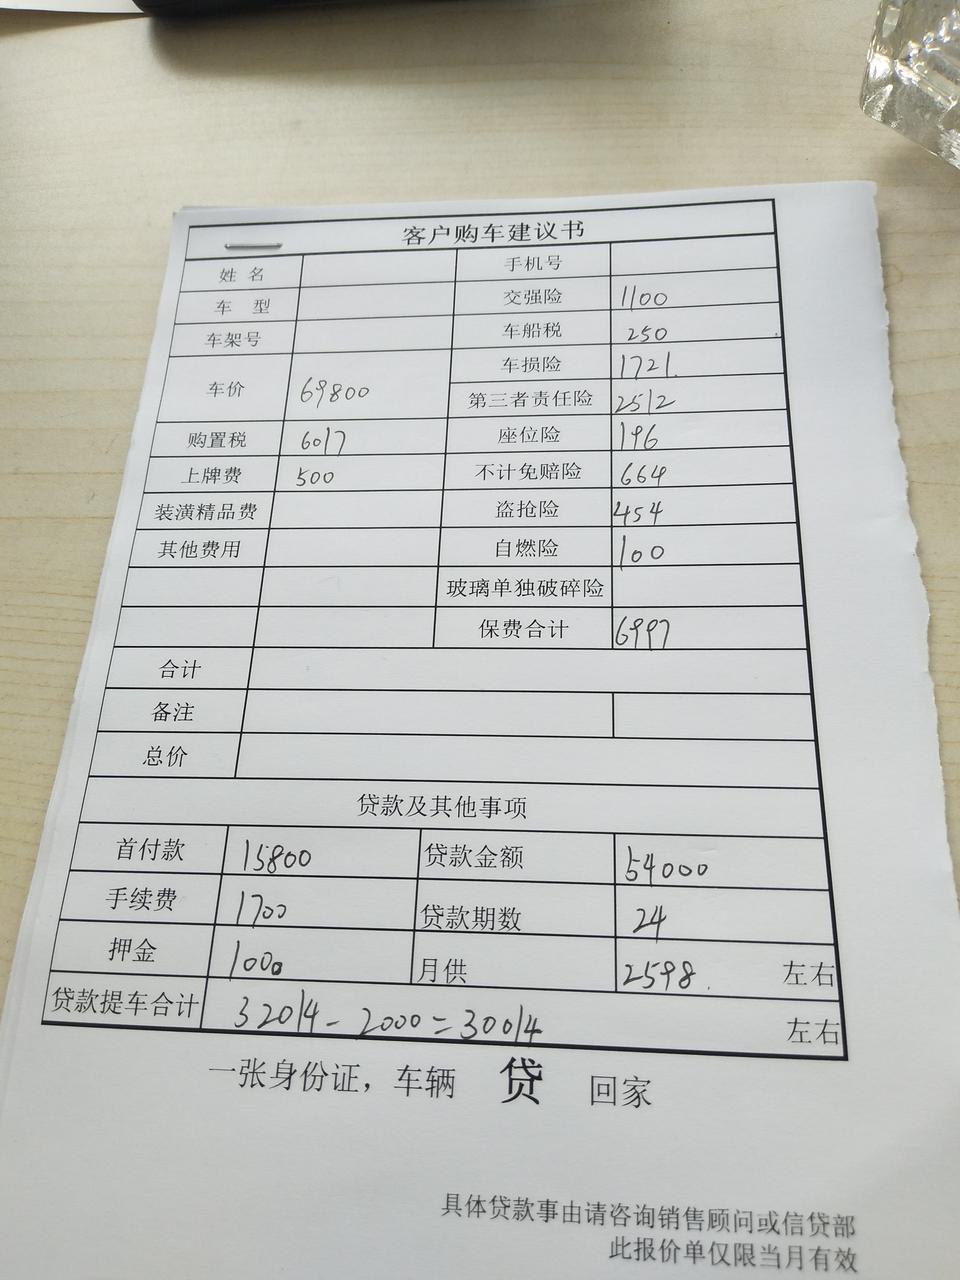 客户购车建议书
姓 名 手机号
车 型 交强险 1100
车架号 车船税 250
车价 69800 车损险 1721.
第三者责任险 2512
购置税 6017 座位险 196
上牌费 500 不计免赔险 664
装潢精品费 盗抢险 454
其他费用 自燃险 100
玻璃单独破碎险
保费合计 6997
合计
备注
总价
贷款及其他事项
首付款 15800 贷款金额 54000
手续费 1700 贷款期数 24
押金 1000 月供 2598. 左右
贷款提车合计 32014-2000=30014 左右
一张身份证，车辆 贷 回家
具体贷款事由请咨询销售顾问或信贷部
此报价单仅限当月有效